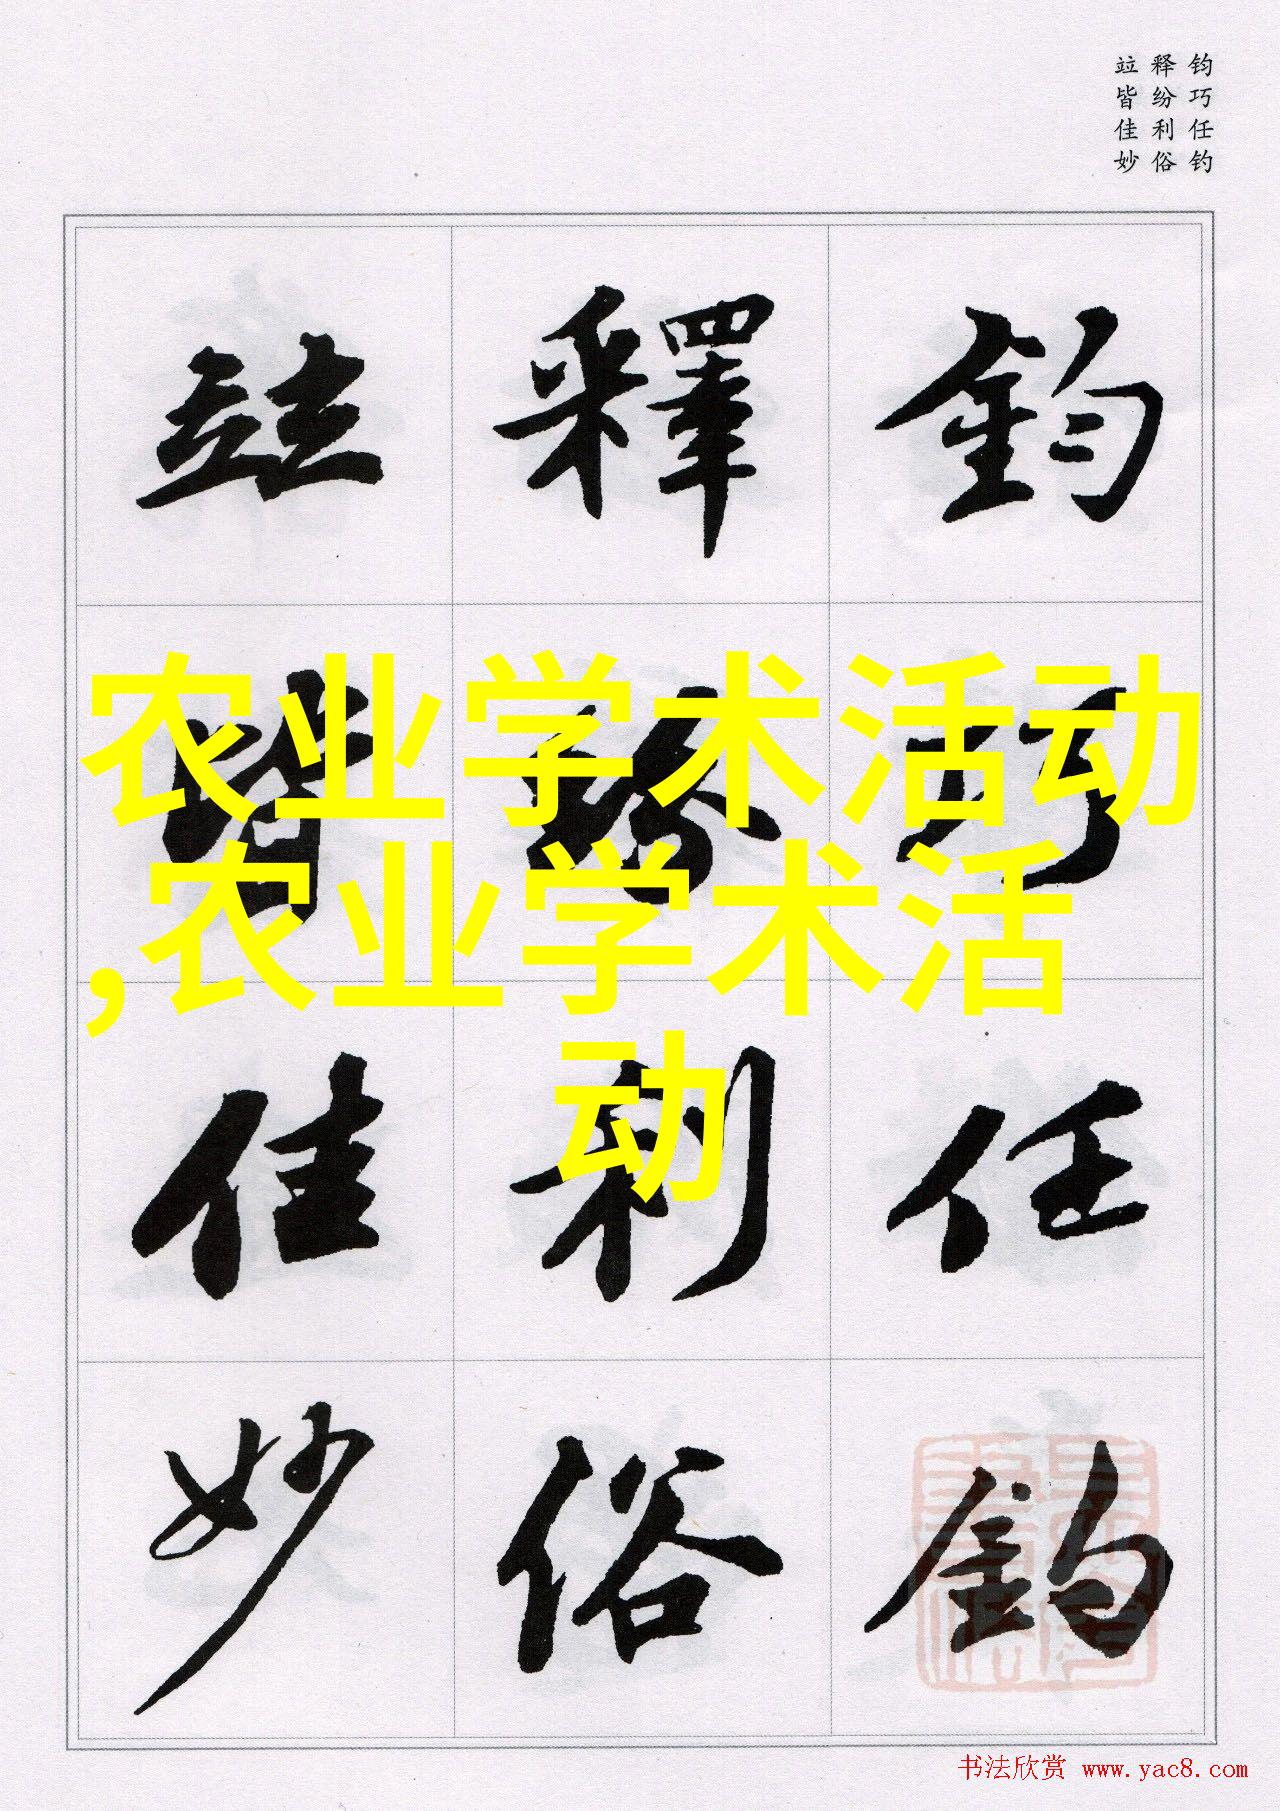 竝 释 钧
皆 纷 巧
佳 利 任
妙 俗 钓
竝 釋 鈞
皆 紛 巧
佳 利 任
妙 俗 釣
农业学术活动
,农业学术活
动
书法欣赏 www.yac8.com